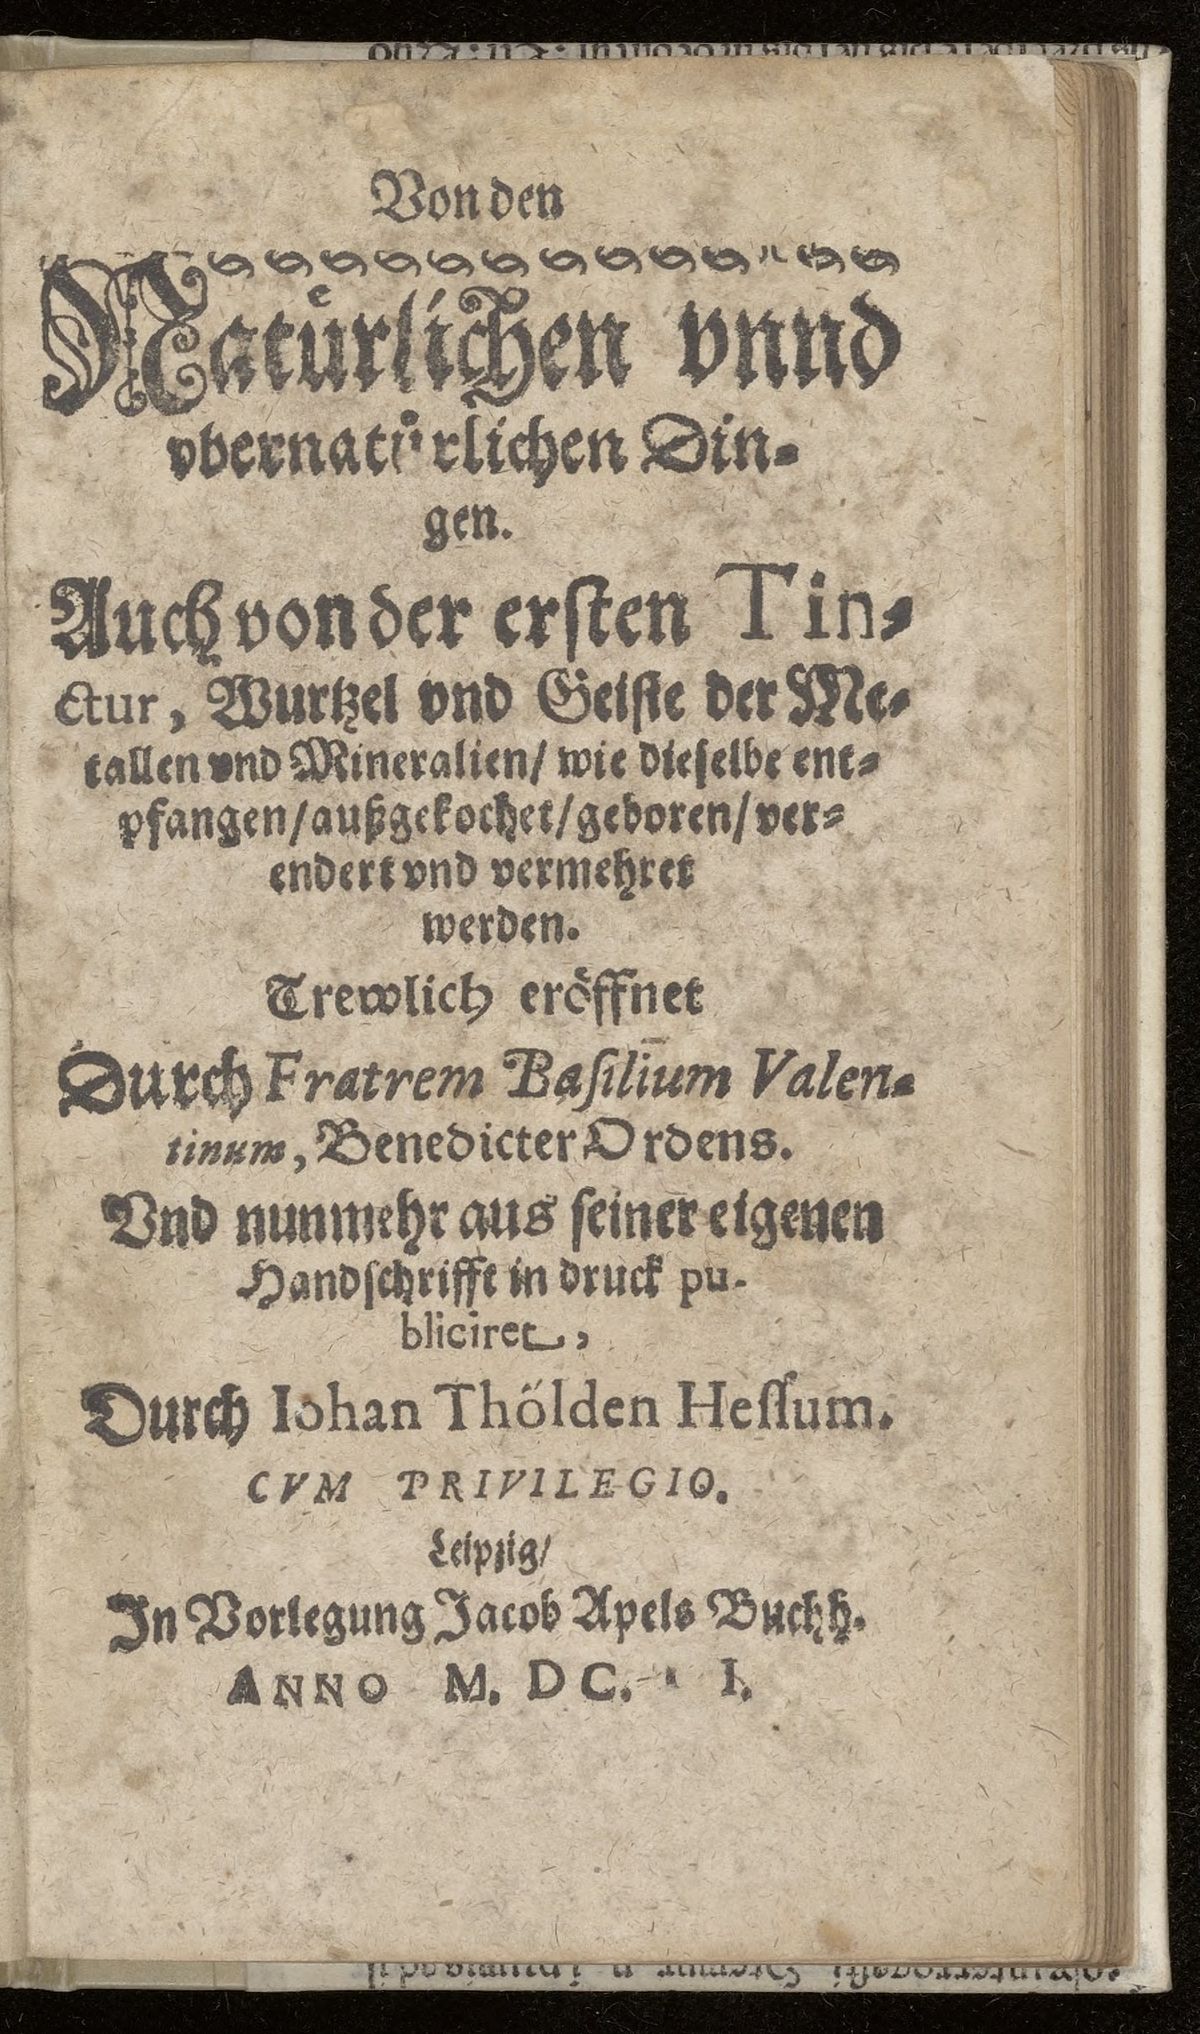 Von den
Natuͤrlichen vnnd
vbernatuͤrlichen Din-
gen.
Auch von der ersten Tin-
ctur, Wurtzel vnd Geiste der Me-
tallen vnd Mineralien/ wie dieselbe ent-
pfangen/ außgekochet/ geboren/ ver-
endert vnd vermehret
werden.
Trewlich eröffnet
Durch Fratrem Basilium Valen-
tinum, Benedicter Ordens.
Vnd nunmehr aus seiner eigenen
Handschrifft in druck pu-
bliciret,
Durch Iohan Thölden Hessum.
CVM PRIVILEGIO.
Leipzig/
In Vorlegung Jacob Apels Buchh.
ANNO M. DC. I.